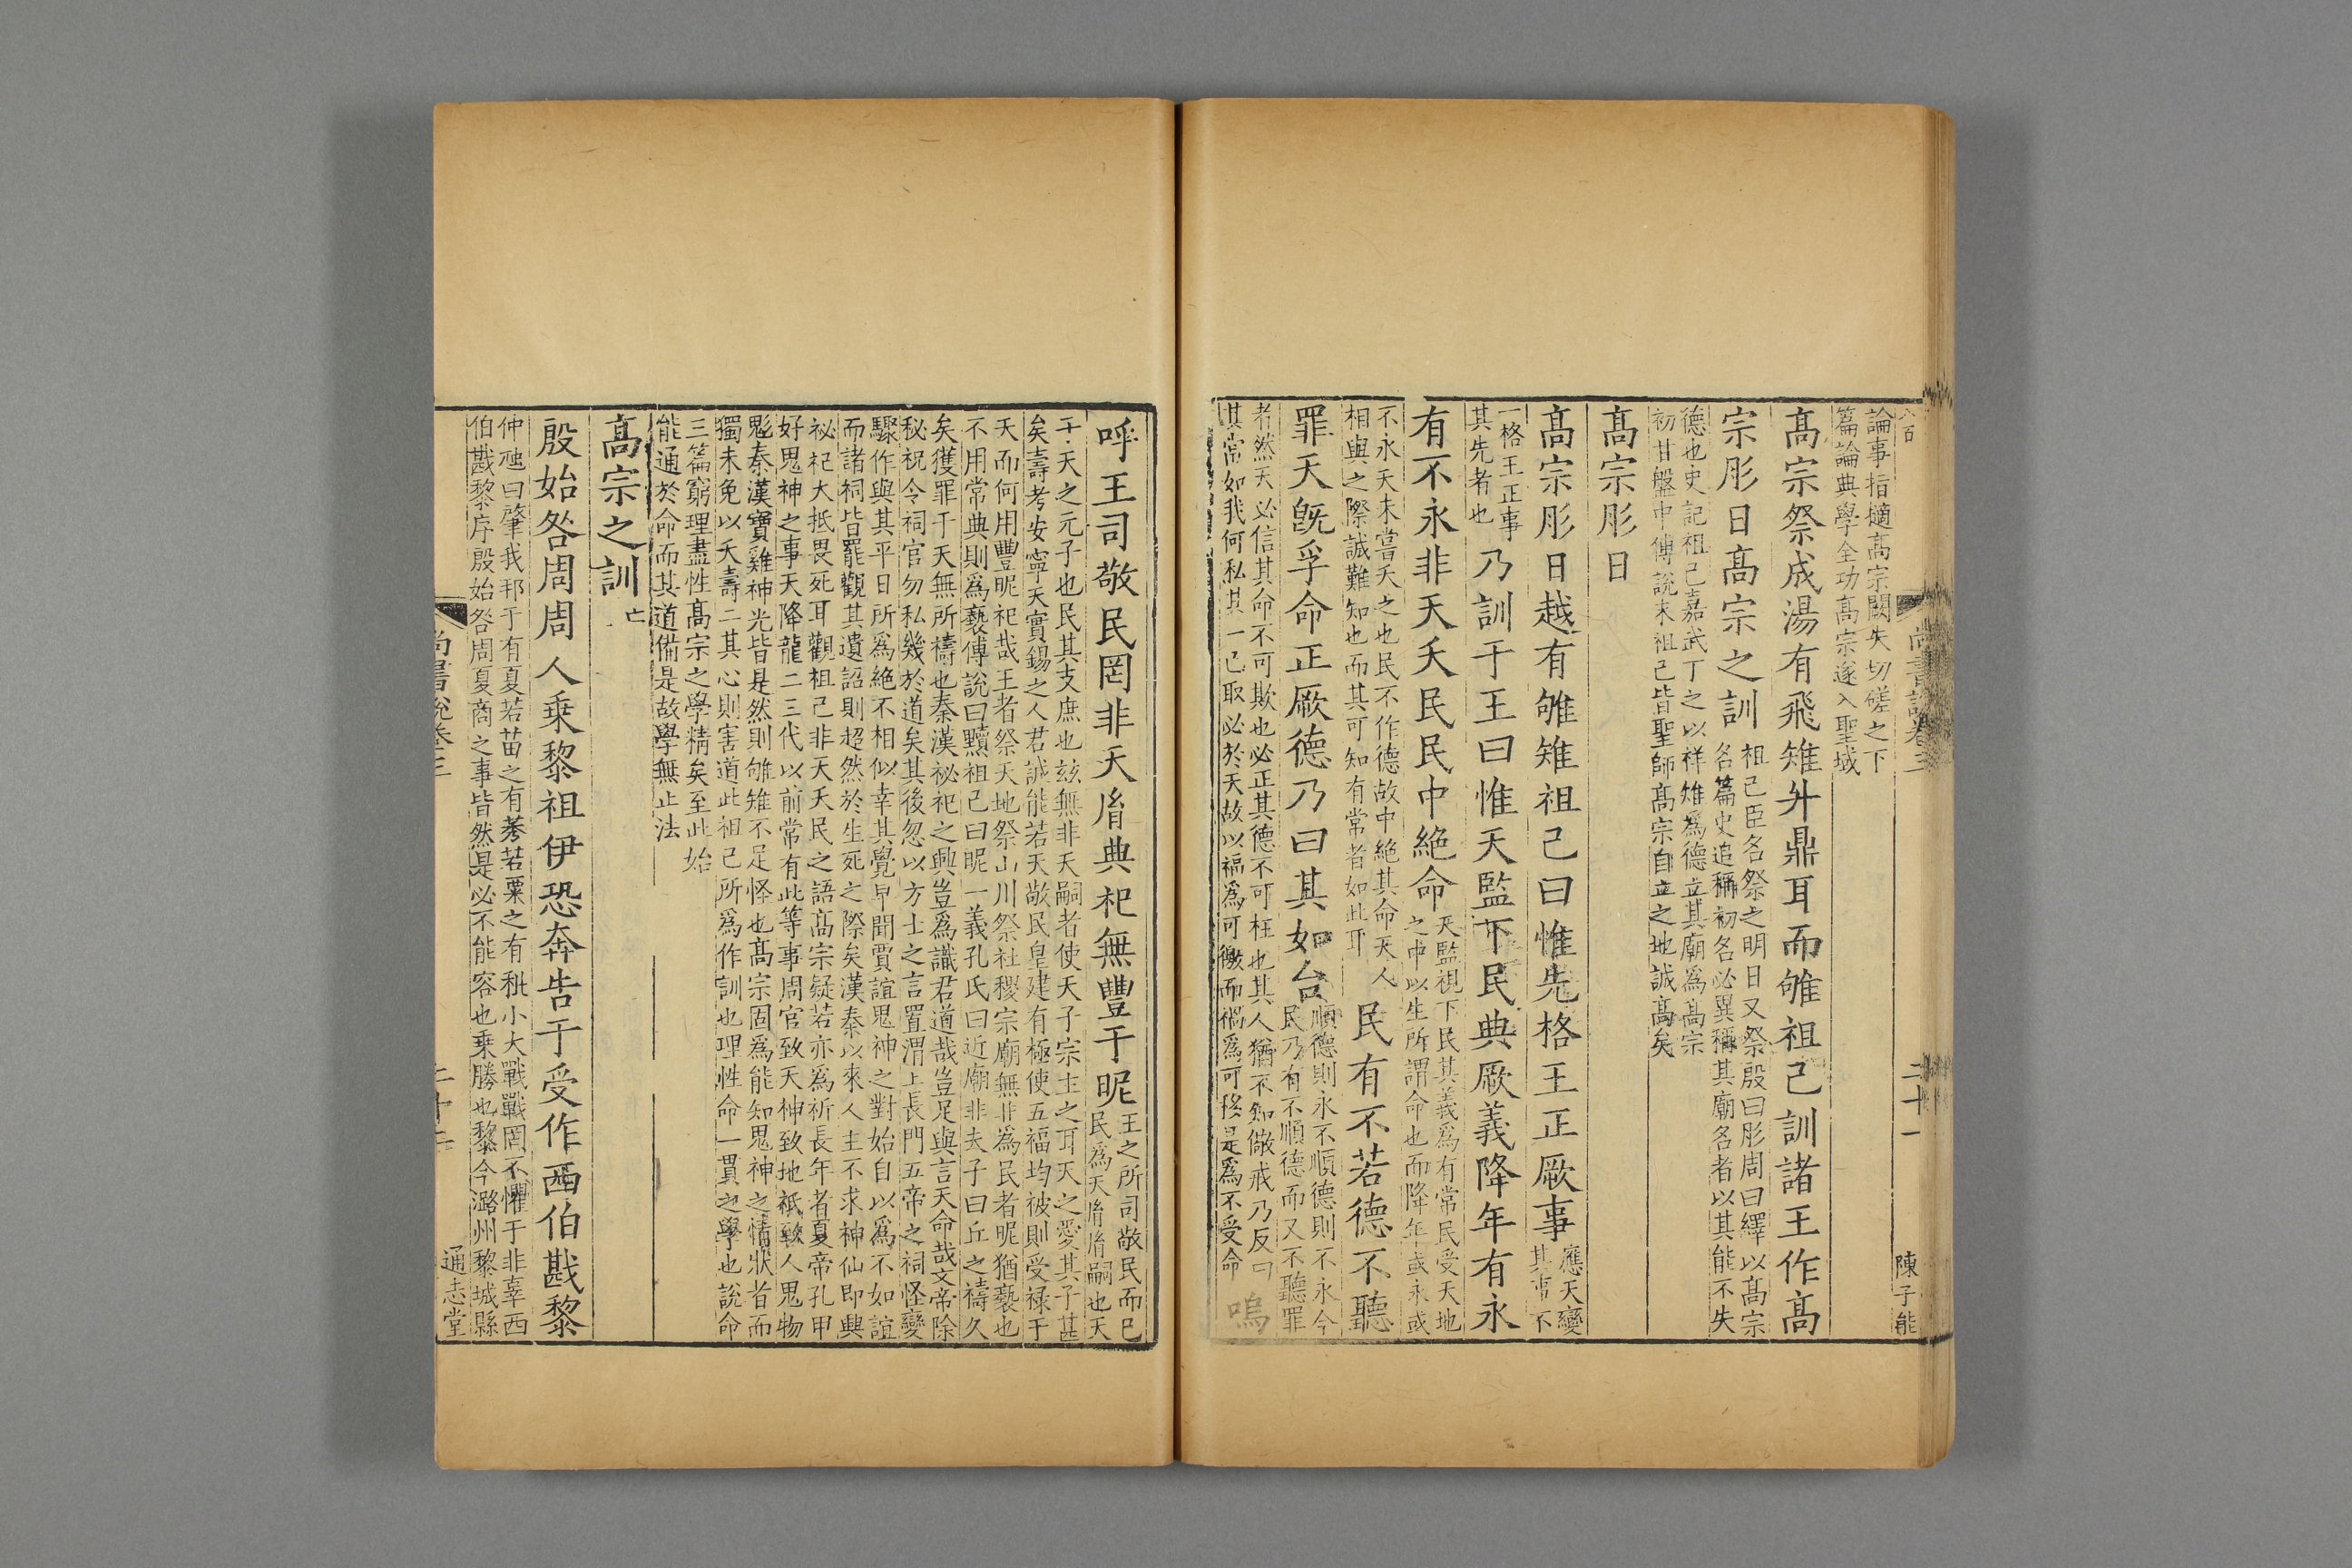 八百
尚書說卷三
二十一
陳子能
論事指擿髙宗闕失切磋之下
篇論典學全功髙宗遂入聖域
髙宗祭成湯有飛雉升鼎耳而雊祖己訓諸王作髙
宗肜日髙宗之訓
祖己臣名祭之明日又祭殷曰肜周曰繹以髙宗
名篇史追稱初名必異稱其廟名者以其能不失
德也史記祖己嘉武丁之以祥雉爲德立其廟爲髙宗
初甘盤中傅說末祖己皆聖師髙宗自立之地誠髙矣
髙宗肜日
髙宗肜日越有雊雉祖己曰惟先格王正厥事
應天變
其事不
一格王正事
其先者也
乃訓于王曰惟天監下民典厥義降年有永
有不永非天夭民民中絶命
天監視下民其義爲有常民受天地
之中以生所謂命也而降年或永或
不永天未嘗夭之也民不作德故中絶其命天人
相與之際誠難知也而其可知有常者如此耳
民有不若德不聽
罪天旣孚命正厥德乃曰其如台
順德則永不順德則不永今
民乃有不順德而又不聽罪
者然天必信其命不可欺也必正其德不可枉也其人猶不知儆戒乃反曰
其常如我何私其一己取必於天故以福爲可徼而禍爲可移是爲不受命
嗚
呼王司敬民罔非天胤典祀無豐于昵
王之所司敬民而已
民爲天胤胤嗣也天
子天之元子也民其支庶也玆無非天嗣者使天子宗主之耳天之愛其子甚
矣壽考安寧天實錫之人君誠能若天敬民皇建有極使五福均被則受禄于
天而何用豐昵祀哉王者祭天地祭山川祭社稷宗廟無非爲民者昵猶褻也
不用常典則爲褻傅說曰黷祖己曰昵一義孔氏曰近廟非夫子曰丘之禱久
矣獲罪于天無所禱也秦漢祕祀之興豈爲識君道哉豈足與言天命哉文帝除
秘祝令祠官勿私幾於道矣其後忽以方士之言置渭上長門五帝之祠怪變
驟作與其平日所爲絶不相似幸其覺早聞賈誼鬼神之對始自以爲不如誼
而諸祠皆罷觀其遺詔則超然於生死之際矣漢秦以來人主不求神仙即興
祕祀大抵畏死耳觀祖己非天夭民之語髙宗疑若亦爲祈長年者夏帝孔甲
好鬼神之事天降龍二三代以前常有此等事周官致天神致地祇致人鬼物
鬽秦漢寶雞神光皆是然則雊雉不足怪也髙宗固爲能知鬼神之情狀者而
獨未免以夭壽二其心則害道此祖己所爲作訓也理性命一貫之學也說命
三篇窮理盡性髙宗之學精矣至此始
能通於命而其道備是故學無止法
髙宗之訓亡
殷始咎周周人乘黎祖伊恐奔告于受作西伯戡黎
仲虺曰肇我邦于有夏若苗之有莠若粟之有秕小大戰戰罔不懼于非辜西
伯戡黎序殷始咎周夏商之事皆然是必不能容也乘勝也黎今潞州黎城縣
尚書說卷三
二十二
通志堂